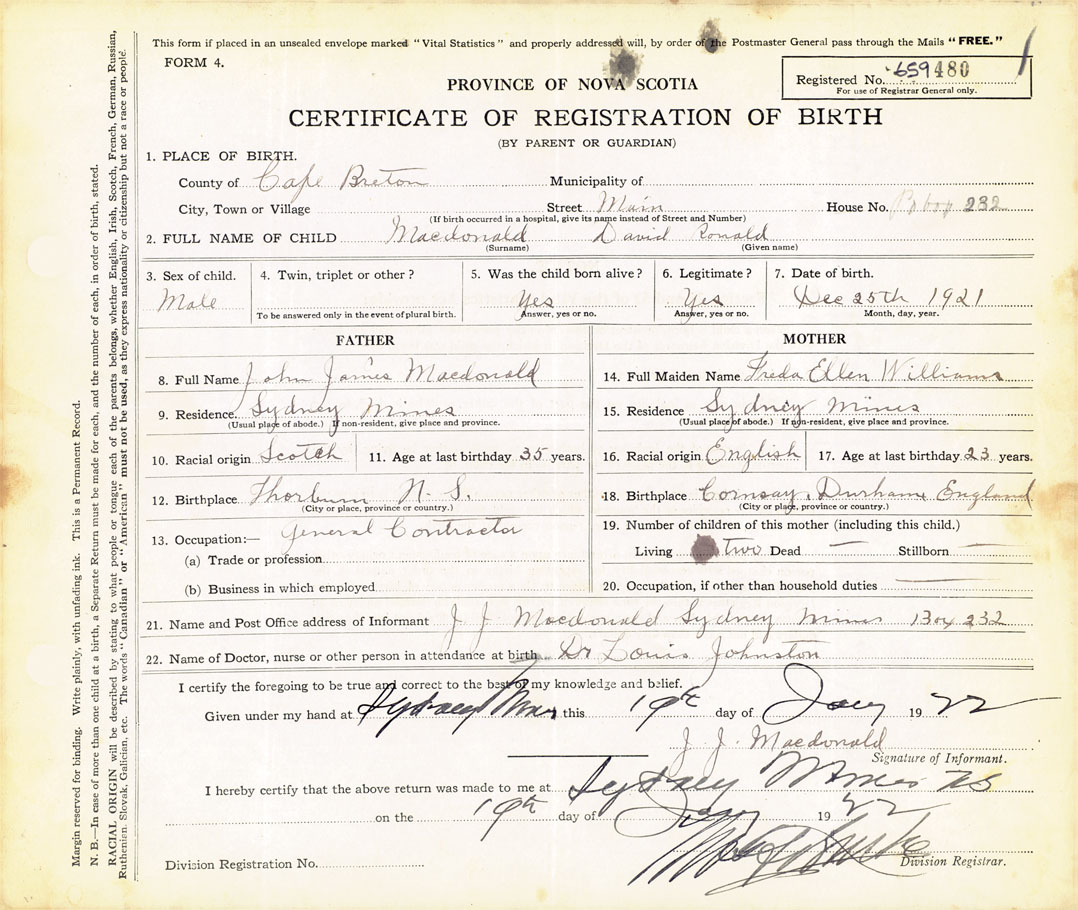 This form if placed in an unsealed envelope marked "Vital Statistics" and properly addressed will, by order of the Postmaster General pass through the Mails "FREE."
FORM 4.
Registered No. 659480
For use of Registrar General only.
PROVINCE OF NOVA SCOTIA
CERTIFICATE OF REGISTRATION OF BIRTH
(BY PARENT OR GUARDIAN)
1. PLACE OF BIRTH.
County of Cape Breton Municipality of
City, Town or Village Street Main House No. 232
(If birth occurred in a hospital, give its name instead of Street and Number)
2. FULL NAME OF CHILD Macdonald David Ronald
(Surname) (Given name)
3. Sex of child. 4. Twin, triplet or other? 5. Was the child born alive? 6. Legitimate? 7. Date of birth.
Male Yes Yes Dec 25th 1921
To be answered only in the event of plural birth. Answer, yes or no. Answer, yes or no. Month, day, year.
FATHER
8. Full Name John James Macdonald
9. Residence. Sydney Mines
(Usual place of abode.) If non-resident, give place and province.
10. Racial origin Scotch 11. Age at last birthday 35 years.
12. Birthplace Thorburn N. S.
(City or place, province or country.)
13. Occupation:— General Contractor
(a) Trade or profession
(b) Business in which employed
MOTHER
14. Full Maiden Name Freda Ellen Williams
15. Residence Sydney Mines
(Usual place of abode.) If non-resident, give place and province.
16. Racial origin English 17. Age at last birthday 23 years.
18. Birthplace Cornsay, Durham England
(City or place, province or country.)
19. Number of children of this mother (including this child.)
Living two Dead — Stillborn —
20. Occupation, if other than household duties —
21. Name and Post Office address of Informant J J Macdonald Sydney Mines Box 232
22. Name of Doctor, nurse or other person in attendance at birth Dr Louis Johnston
I certify the foregoing to be true and correct to the best of my knowledge and belief.
Given under my hand at Sydney Mines this 19th day of Jany 1922
J J. Macdonald
Signature of Informant.
I hereby certify that the above return was made to me at Sydney Mines NS
on the 19th day of Jany 1922
Division Registration No. Division Registrar.
Margin reserved for binding. Write plainly, with unfading ink. This is a Permanent Record.
N. B.—In case of more than one child at a birth, a Separate Return must be made for each, and the number of each, in order of birth, stated.
RACIAL ORIGIN will be described by stating to what people or tongue each of the parents belongs, whether English, Irish, Scotch, French, German, Russian,
Ruthenian, Slovak, Galician, etc. The words "Canadian" or "American" must not be used, as they express nationality or citizenship but not a race or people.